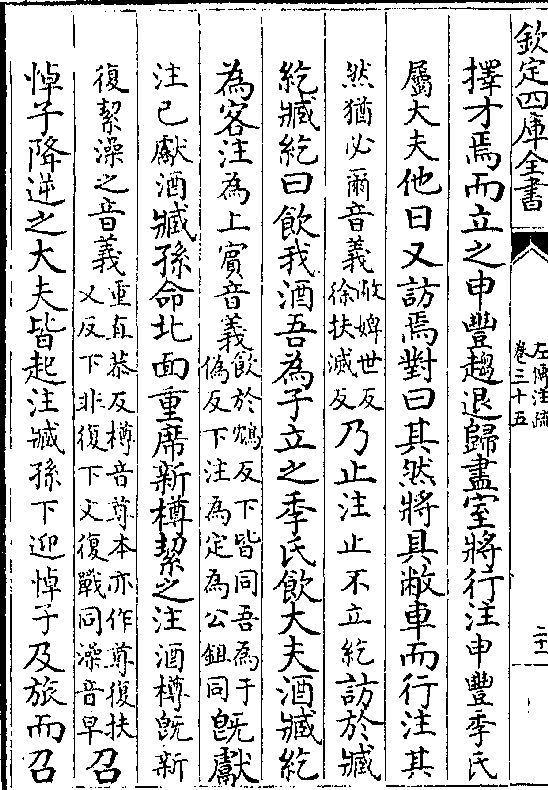 欽定四庫全書
左傳注疏
卷三十五
二十一
擇才焉而立之申豐趨退歸盡室將行注申豐季氏
屬大夫他日又訪焉對曰其然將具敝車而行注其
然猶必爾音義敝婢世反徐扶滅反乃止注止不立紇訪於臧
紇臧紇曰飲我酒吾為子立之季氏飲大夫酒臧紇
為客注為上賓音義飲於鴆反下皆同吾為于偽反下注為定為公鉏同既獻
注已獻酒臧孫命北面重席新樽絜之注酒樽既新
復絜澡之音義重直恭反樽音尊本亦作尊復扶又反下非復下文復戰同澡音早召
悼子降逆之大夫皆起注臧孫下迎悼子及旅而召